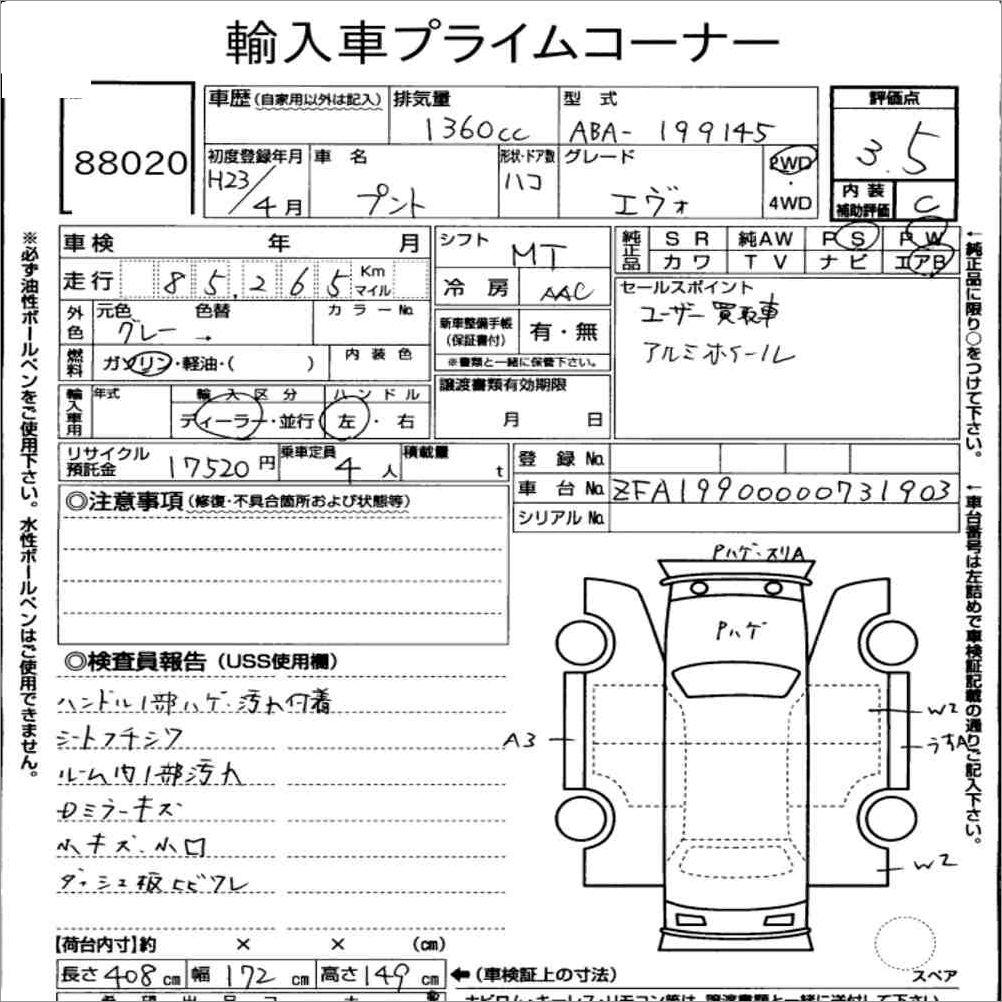 輸入車プライムコーナー
88020
車歴(自家用以外は記入) 排気量 型 式 評価点
1360cc ABA- 199145 3.5
初度登録年月 車 名 形状・ドア数 グレード 2WD
H23/4月 プント ハコ エヴォ ・ 4WD
内装補助評価 C
※必ず油性ボールペンをご使用下さい。水性ボールペンはご使用できません。
車検 年 月 シフト MT
純正品 SR 純AW PS PW
カワ TV ナビ エアB
←純正品に限り○をつけて下さい。
走行 85,265 Km マイル 冷房 AAC
セールスポイント
ユーザー買取車
アルミホイール
外色 元色 色替 カラーNo.
グレー →
新車整備手帳(保証書付) 有・無
※書類と一緒に保管下さい。
燃料 ガソリン・軽油・( ) 内装色
譲渡書類有効期限
月 日
輸入車用 年式 輸入区分 ハンドル
ディーラー・並行 左・右
リサイクル預託金 17520円 乗車定員 4人 積載量 t
登録No.
車台No. ZFA19900000731903
シリアルNo.
←車台番号は左詰めで車検証記載の通りご記入下さい。
◎注意事項(修復・不具合箇所および状態等)
◎検査員報告(USS使用欄)
ハンドル1部ハゲ・汚れ付着
シートフチシワ
ルーム内1部汚れ
Dミラーキズ
小キズ、小凹
ダッシュ板ヒビワレ
Pハゲ・スリA
Pハゲ
A3
W2
うすA
W2
スペア
【荷台内寸】約 × × (cm)
長さ408cm 幅172cm 高さ149cm ←(車検証上の寸法)